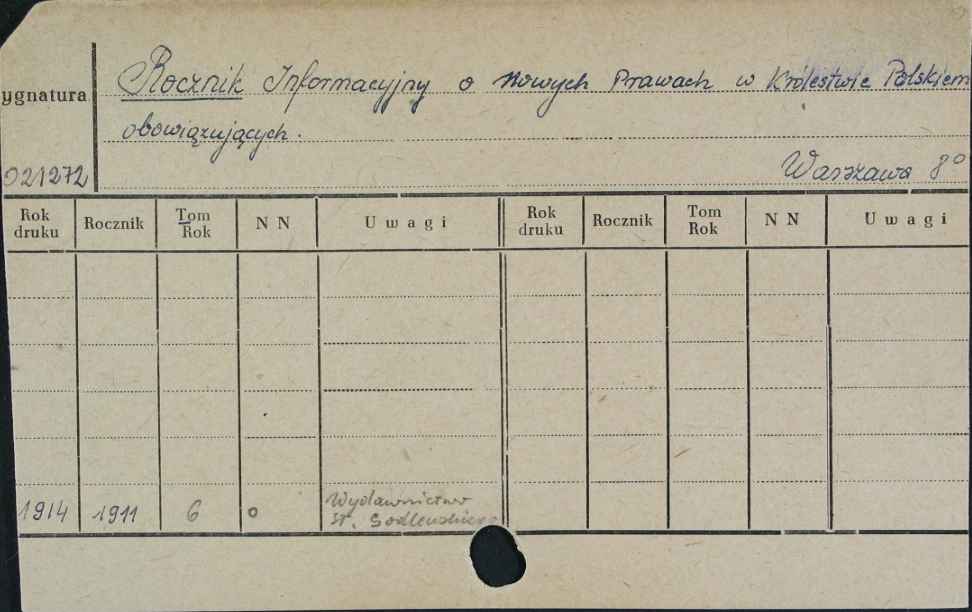 Rocznik Informacyjny o nowych Prawach w Królestwie Polskiem
ygnatura
obowiązujących.
021272
Warszawa 8°
Rok druku Rocznik Tom Rok NN Uwagi Rok druku Rocznik Tom Rok NN Uwagi
1914 1911 6 o Wydawnictwo
St.